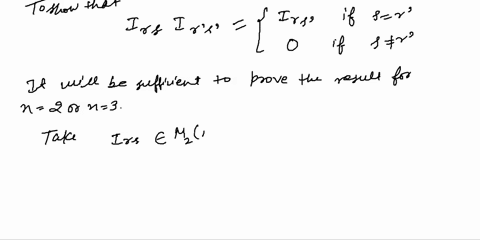 To show that
I_rs I_r's' = { I_rs' if s=r'
0 if s≠r'
It will be sufficient to prove the result for
n=2 or n=3.
Take I_rs ∈ M_2(,